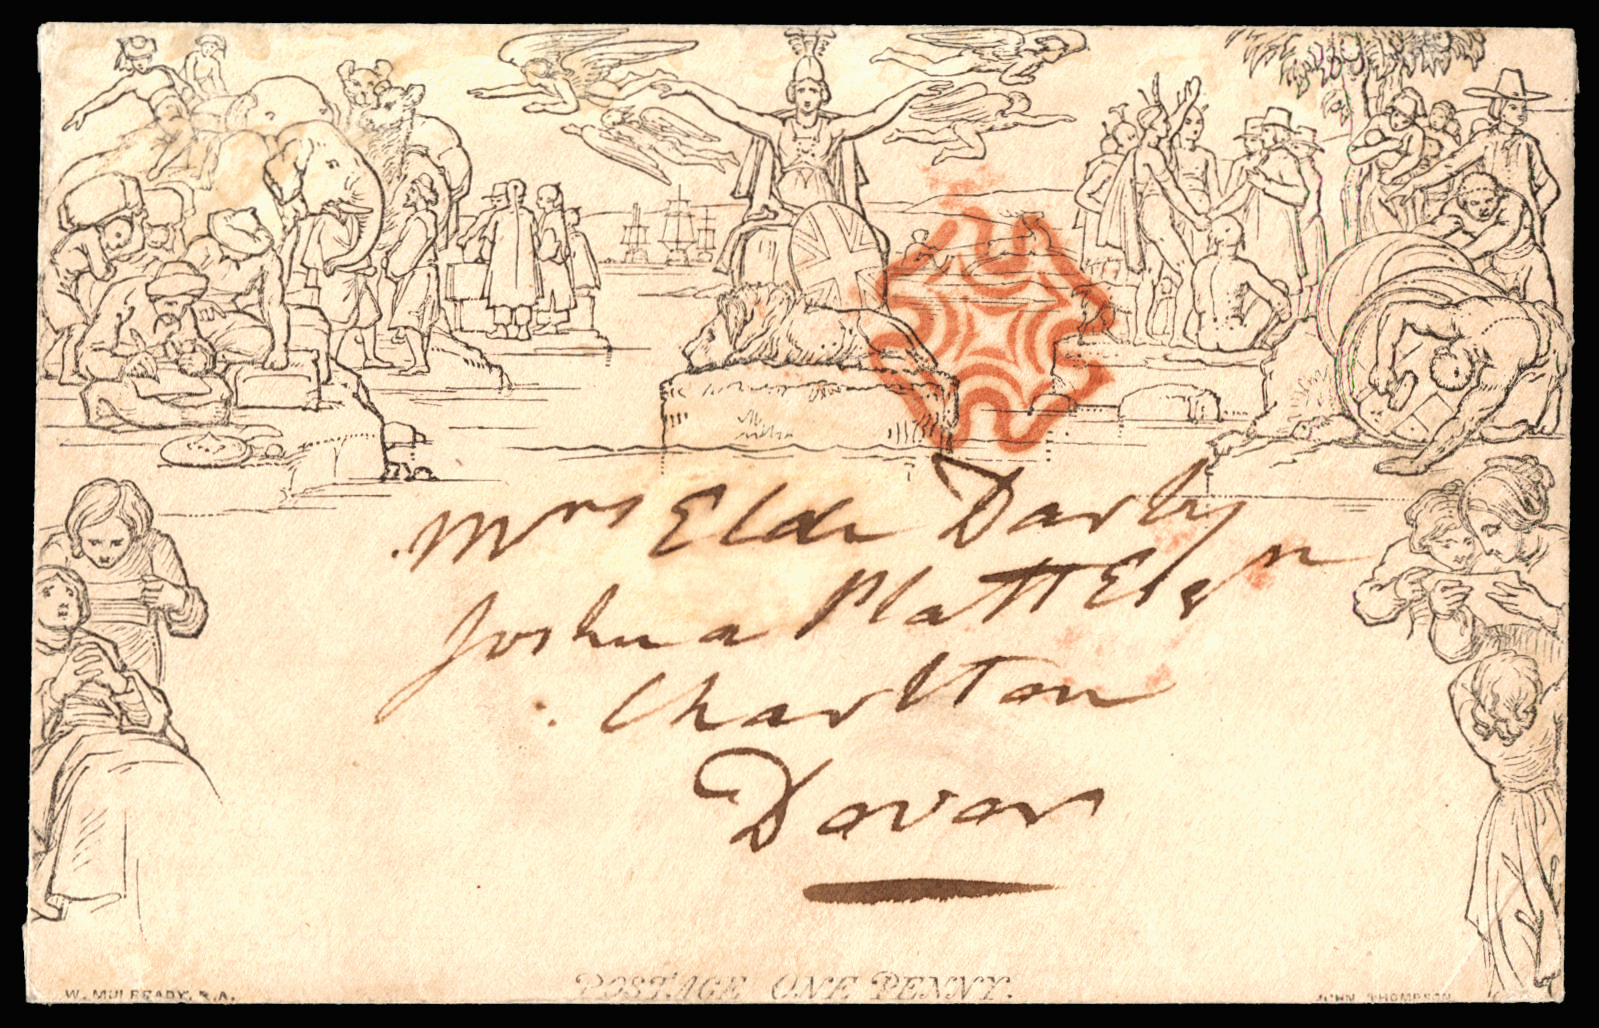 Mrs Elde Darby
Joshua Platt Esqr
Charlton
Dover
POSTAGE ONE PENNY.
W. MULREADY, R.A.
JOHN THOMPSON